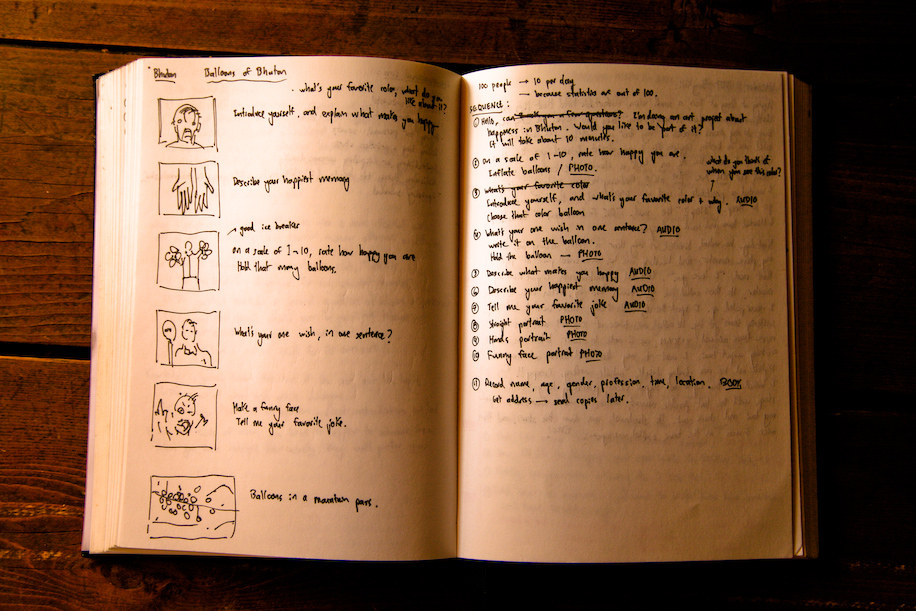 Bhutan Balloons of Bhutan
what's your favorite color, what do you
like about it?
Introduce yourself, and explain what makes you happy
Describe your happiest memory
→ good ice breaker
on a scale of 1-10, rate how happy you are
Hold that many balloons.
What's your one wish, in one sentence?
Make a funny face
Tell me your favorite joke.
Balloons in a mountain pass.
100 people → 10 per day
→ because statistics are out of 100.
SEQUENCE:
① Hello, can I ask you a few questions? I'm doing an art project about
happiness in Bhutan. Would you like to be part of it?
It will take about 10 minutes.
② on a scale of 1-10, rate how happy you are.
Inflate balloons / PHOTO.
what do you think of
when you see this color?
③ What's your favorite color
Introduce yourself, and what's your favorite color + why. AUDIO
choose that color balloon
④ What's your one wish in one sentence? AUDIO
write it on the balloon.
Hold the balloon — PHOTO
⑤ Describe what makes you happy AUDIO
⑥ Describe your happiest memory AUDIO
⑦ Tell me your favorite joke AUDIO
⑧ Straight portrait PHOTO
⑨ Hands portrait PHOTO
⑩ Funny face portrait PHOTO
⑪ Record name, age, gender, profession, time, location. BOOK
Get address → send copies later.